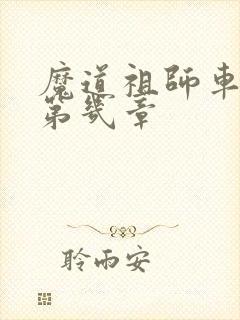 魔道祖師車
第幾章
聆雨安